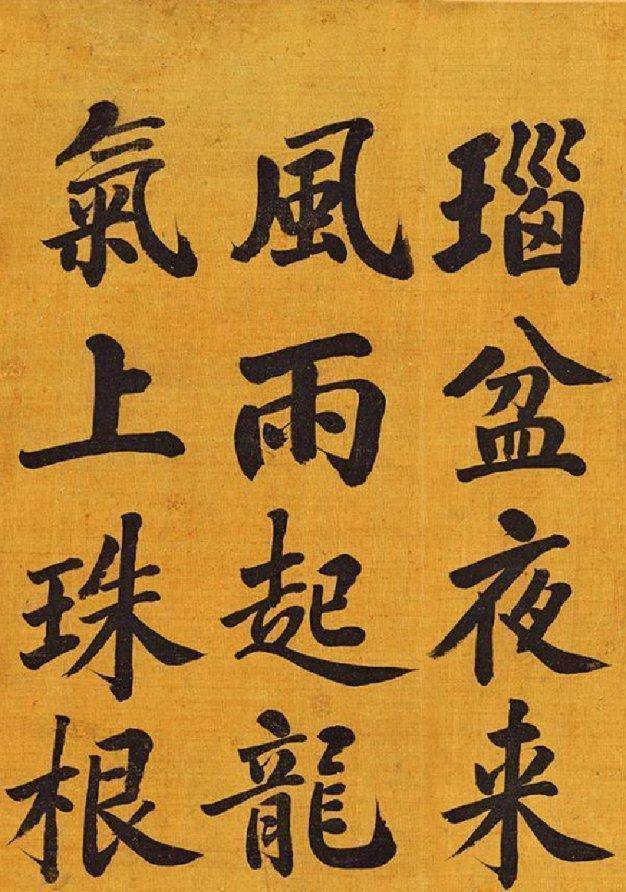 瑙盆夜来
風雨起龍
氣上珠根